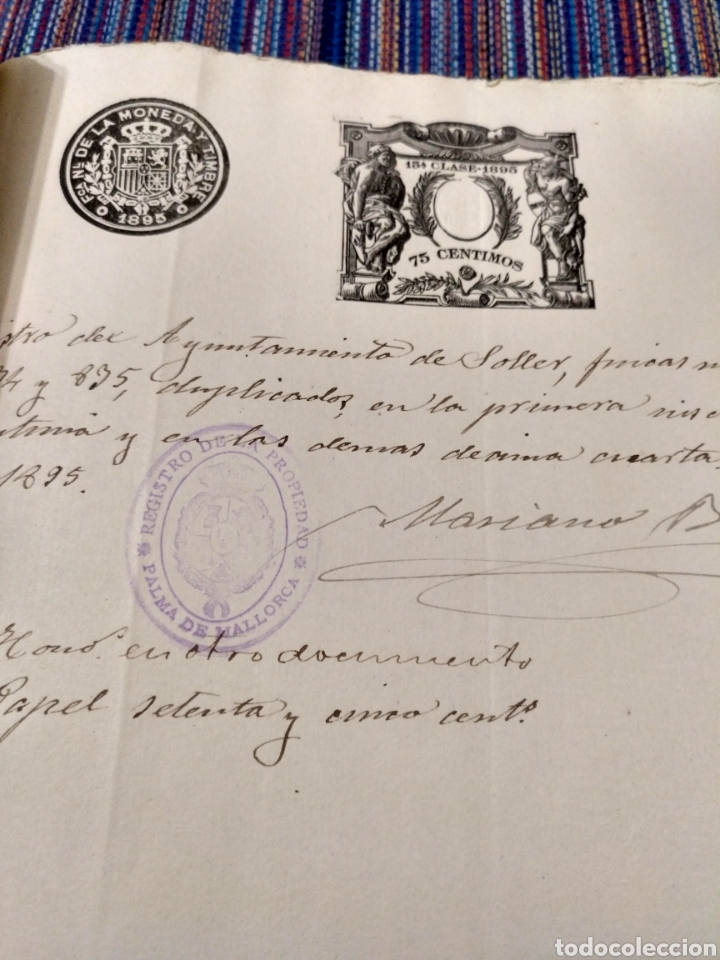 FCA. NL. DE LA MONEDA Y TIMBRE
1895
15ª CLASE · 1895
75 CENTIMOS
Ayuntamiento de Soller, fincas
y 835, duplicados, en la primera
y en las demas decima cuarta
1895.
Mariano B
REGISTRO DE LA PROPIEDAD
PALMA DE MALLORCA
Hons. en otro documento
Papel setenta y cinco cents.
todocoleccion